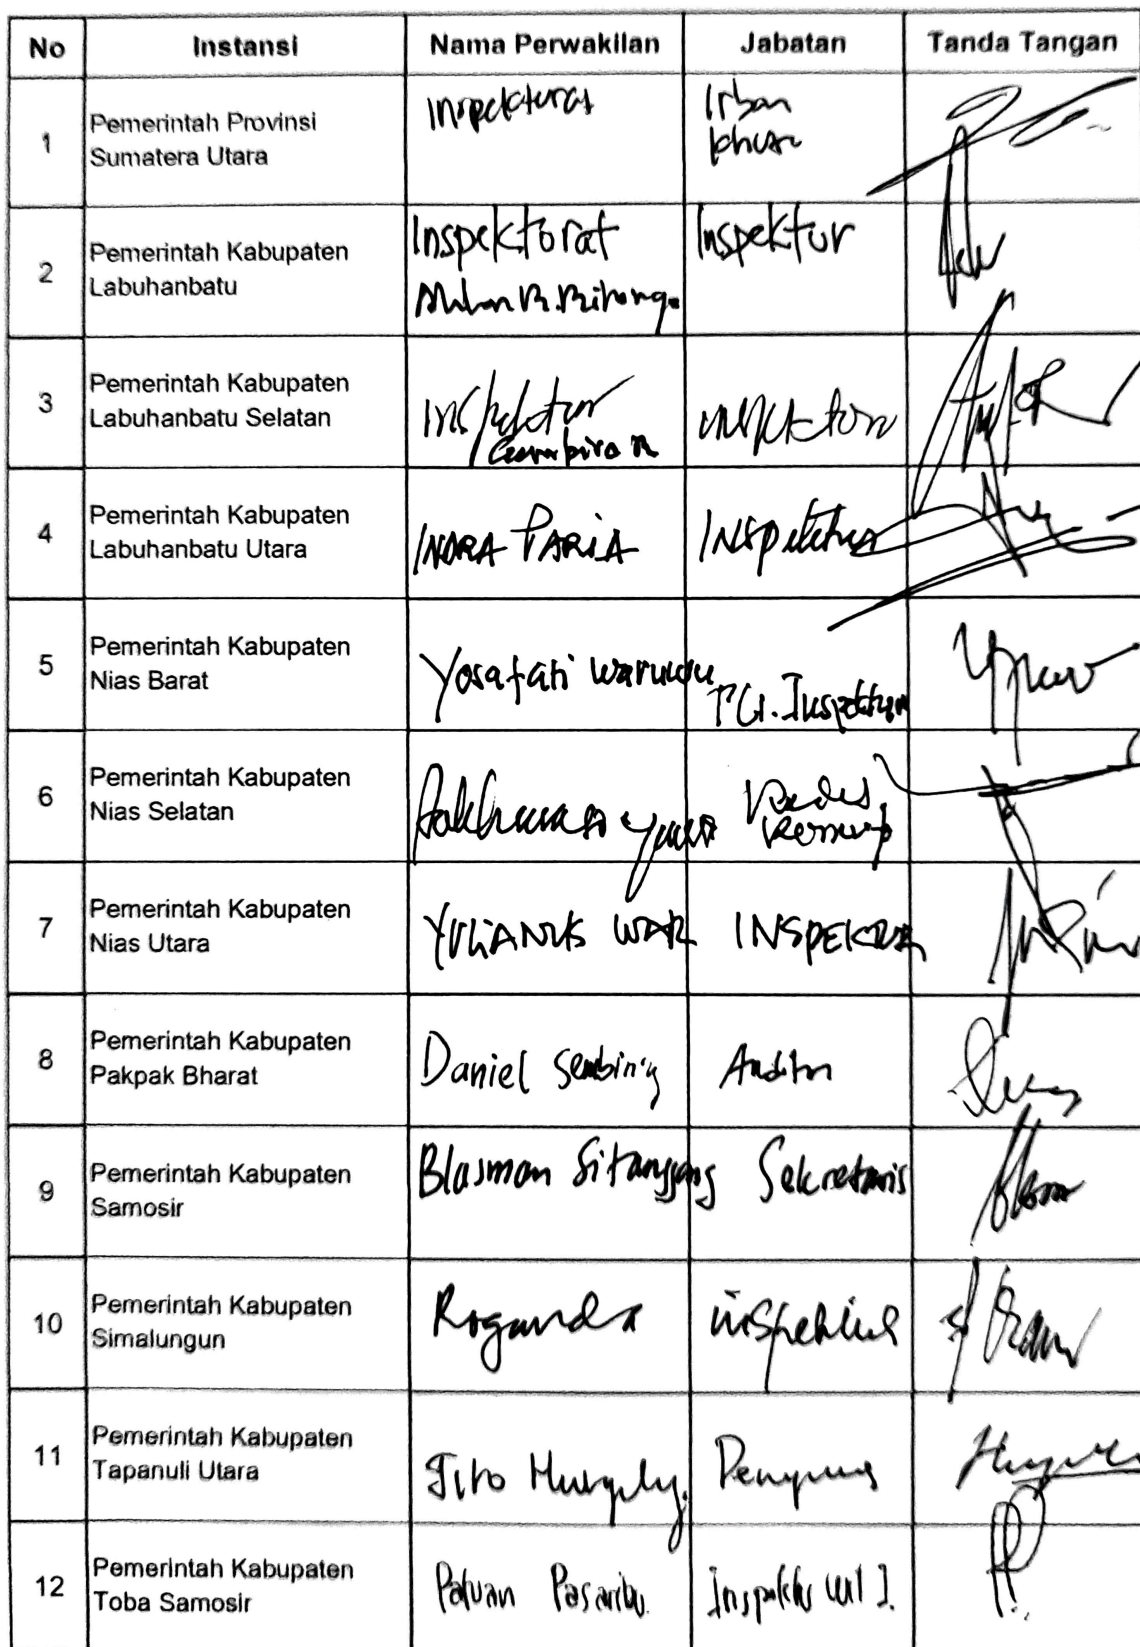 No Instansi Nama Perwakilan Jabatan Tanda Tangan
1 Pemerintah Provinsi Sumatera Utara Inspektorat Irban khusus
2 Pemerintah Kabupaten Labuhanbatu Inspektorat Inspektur
3 Pemerintah Kabupaten Labuhanbatu Selatan Inspektur inspektur
4 Pemerintah Kabupaten Labuhanbatu Utara INDRA PARIA INSpektur
5 Pemerintah Kabupaten Nias Barat Yosafati Waruwu Inspektur
6 Pemerintah Kabupaten Nias Selatan
7 Pemerintah Kabupaten Nias Utara YULiANUS WAR INSPEKTUR
8 Pemerintah Kabupaten Pakpak Bharat Daniel Sembiring Auditor
9 Pemerintah Kabupaten Samosir Blasman Sitanggang Sekretaris
10 Pemerintah Kabupaten Simalungun Roganda inspektur
11 Pemerintah Kabupaten Tapanuli Utara Tito
12 Pemerintah Kabupaten Toba Samosir Patuan Pasaribu Inspektur wil I.